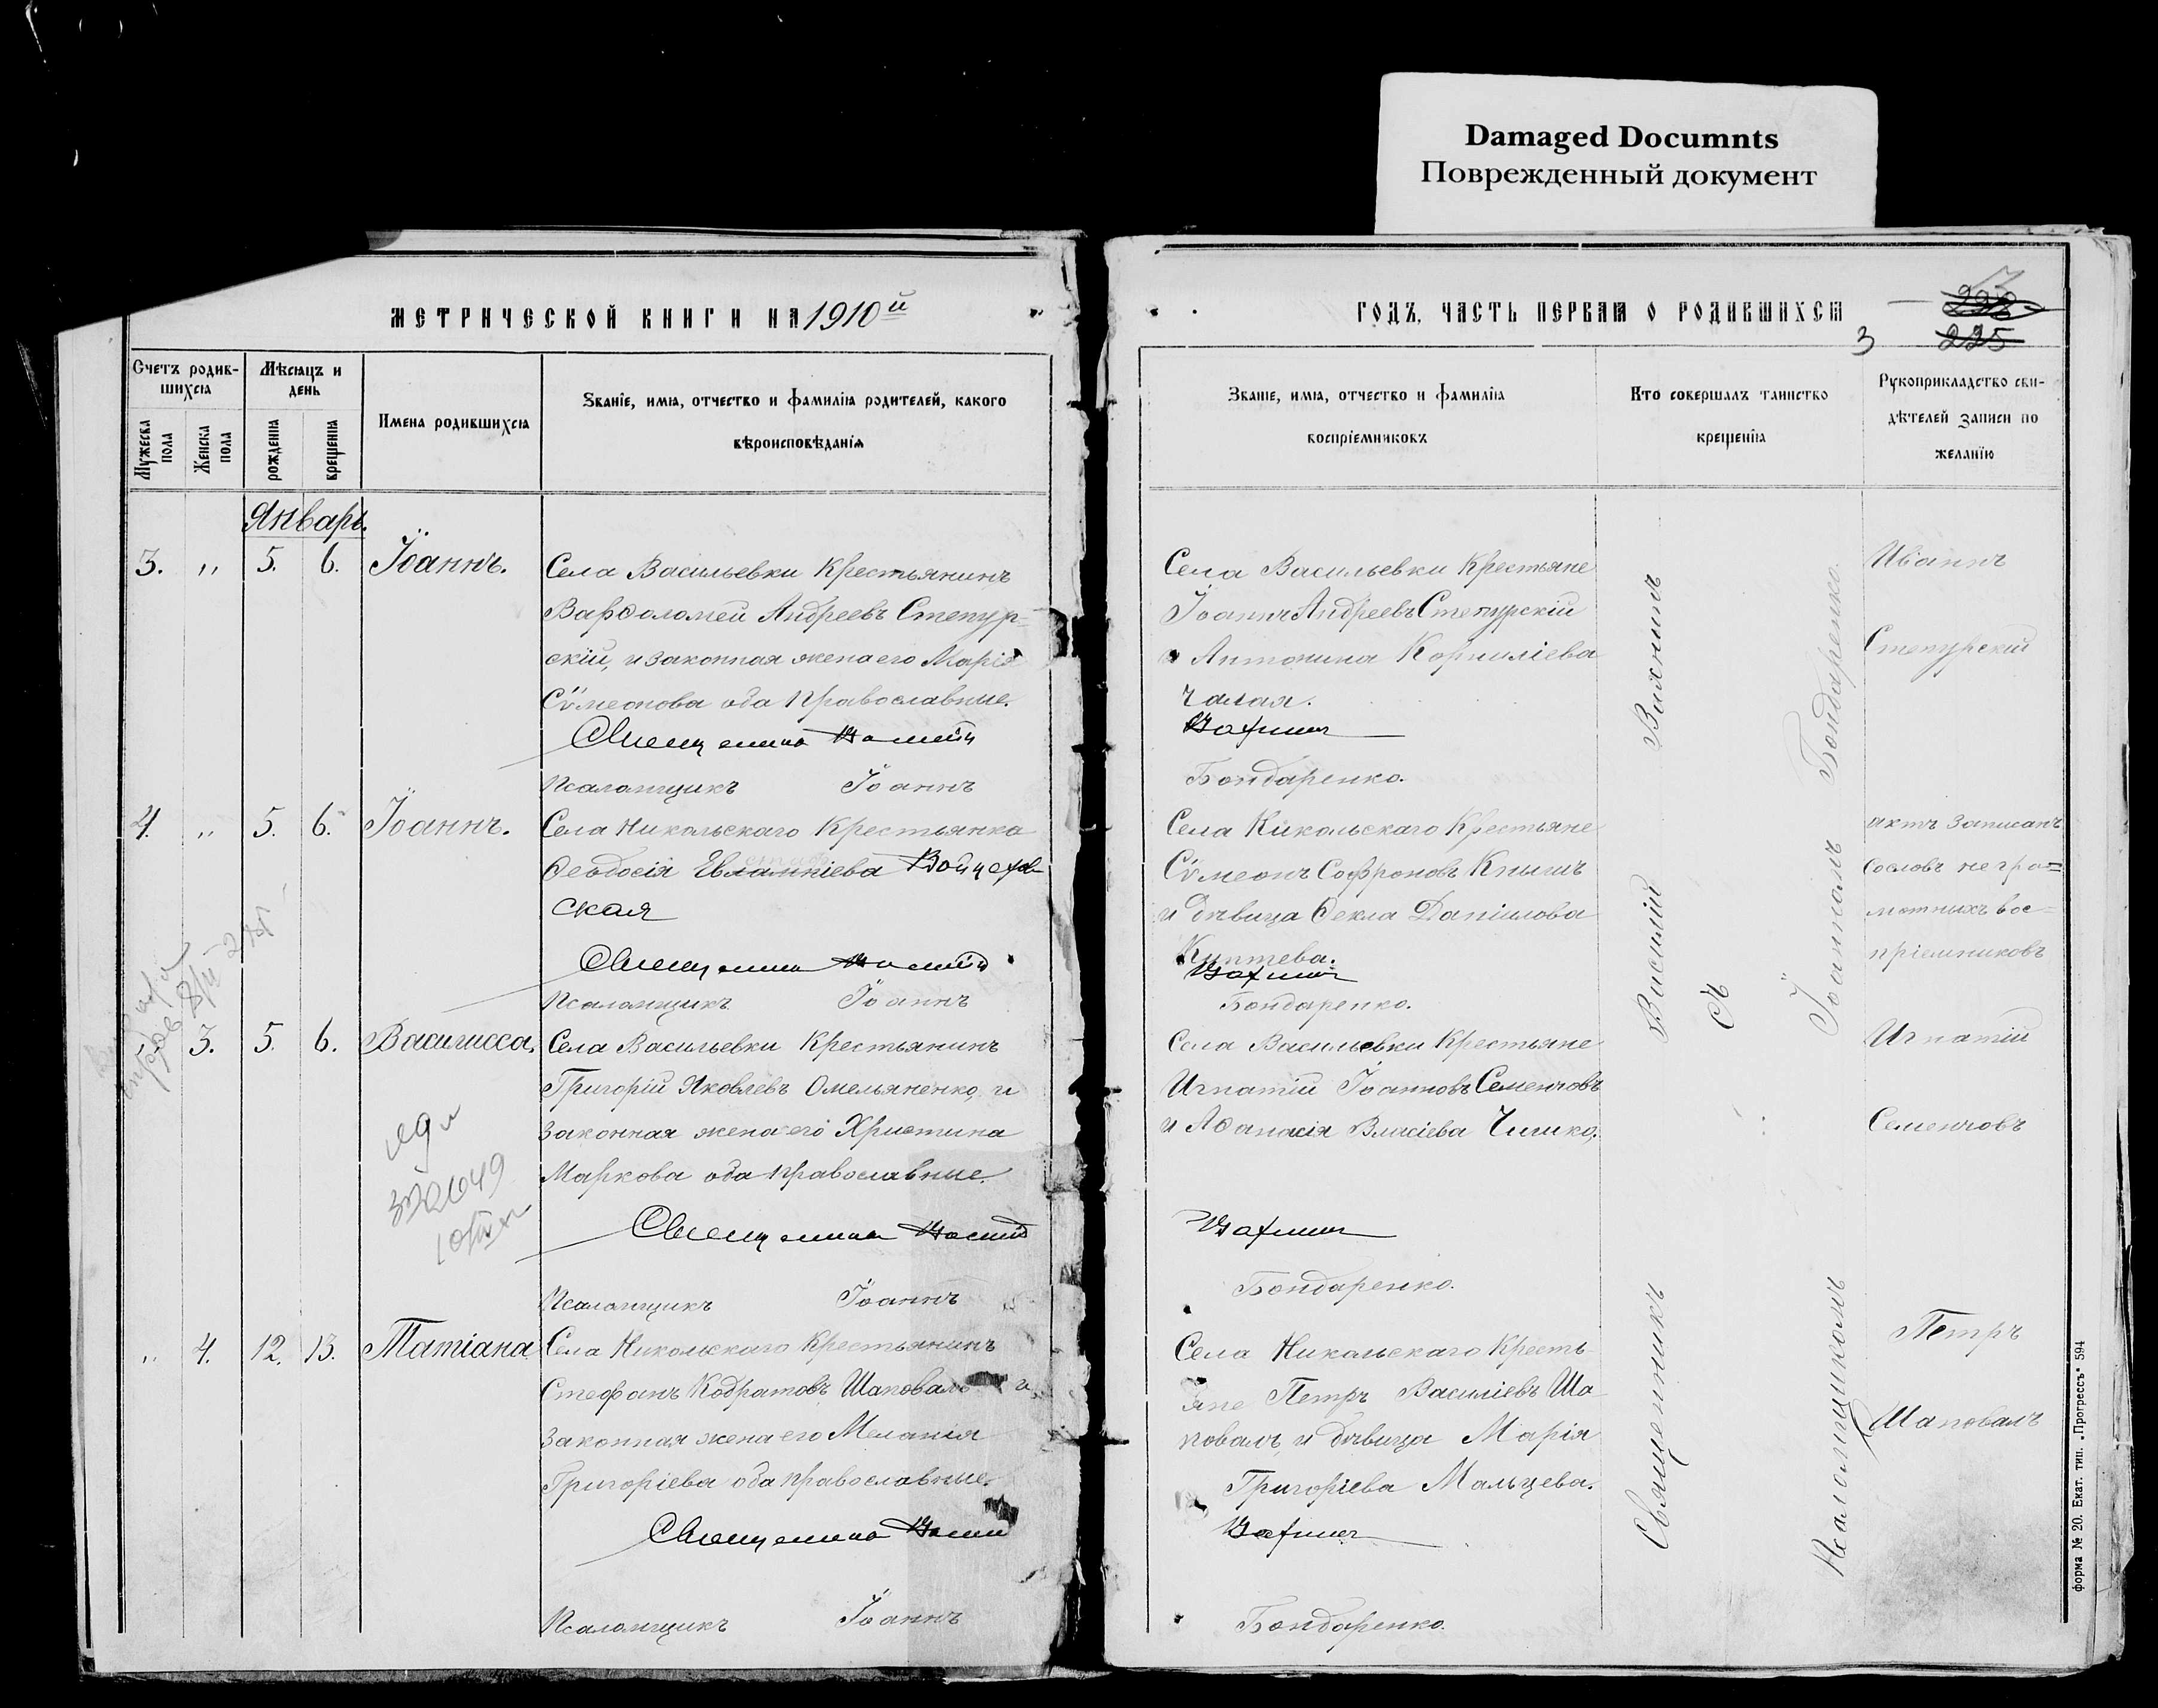 Damaged Documnts
Поврежденный документ
МЕТРИЧЕСКОЙ КНИГИ НА 1910й
ГОДЪ, ЧАСТЬ ПЕРВАЯ О РОДИВШИХСЯ
228
3 225
Счетъ родив-
шихся
Мѣсяцъ и
день
Мужеска
пола
Женска
пола
рожденія
крещенія
Имена родившихся
Званіе, имя, отчество и фамилія родителей, какого
вѣроисповѣданія
Званіе, имя, отчество и фамилія
воспріемниковъ
Кто совершалъ таинство
крещенія
Рукоприкладство сви-
дѣтелей записи по
желанію
Январь.
3. " 5. 6. Іоаннъ.
Села Васильевки Крестьянинъ
Варѳоломей Андреевъ Степур-
скій, и законная жена его Марія
Сѵмеонова оба православные.
Священникъ Василій
Псаломщикъ Іоаннъ
Села Васильевки Крестьяне
Іоаннъ Андреевъ Степурскій
и Антонина Корниліева
Чалая.
Бондаренко.
Иванъ
Степурскій
4. " 5. 6. Іоаннъ.
Села Никольскаго Крестьянка
Ѳеодосія Евлампіева Войцехов-
ская
Священникъ Василій
Псаломщикъ Іоаннъ
Села Никольскаго Крестьяне
Сѵмеонъ Софроновъ Книшъ
и дѣвица Ѳекла Даніилова
Куптева.
Бондаренко.
актъ записанъ
со словъ негра=
мотныхъ вос=
пріемниковъ
3. 5. 6. Василисса,
Села Васильевки Крестьянинъ
Григорій Яковлевъ Омельяненко, и
законная жена его Христина
Маркова оба православные.
Священникъ Василій
Псаломщикъ Іоаннъ
Села Васильевки Крестьяне
Игнатій Іоанновъ Семенчовъ
и Аѳанасія Власіева Чишко,
Бондаренко.
Игнатій
Семенчовъ
" 4. 12. 13. Татіана
Села Никольскаго Крестьянинъ
Стефанъ Кодратовъ Шаповалъ и
законная жена его Меланія
Григоріева оба православные.
Священникъ Василій
Псаломщикъ Іоаннъ
Села Никольскаго Кресть-
яне Петръ Василіевъ Ша
повалъ и дѣвица Марія
Григоріева Мальцева.
Бондаренко.
Петръ
Шаповалъ
Священникъ Василій
съ
Псаломщикомъ Іоанномъ Бондаренко.
форма № 20. Екат. тип. „Прогрессъ“ 594